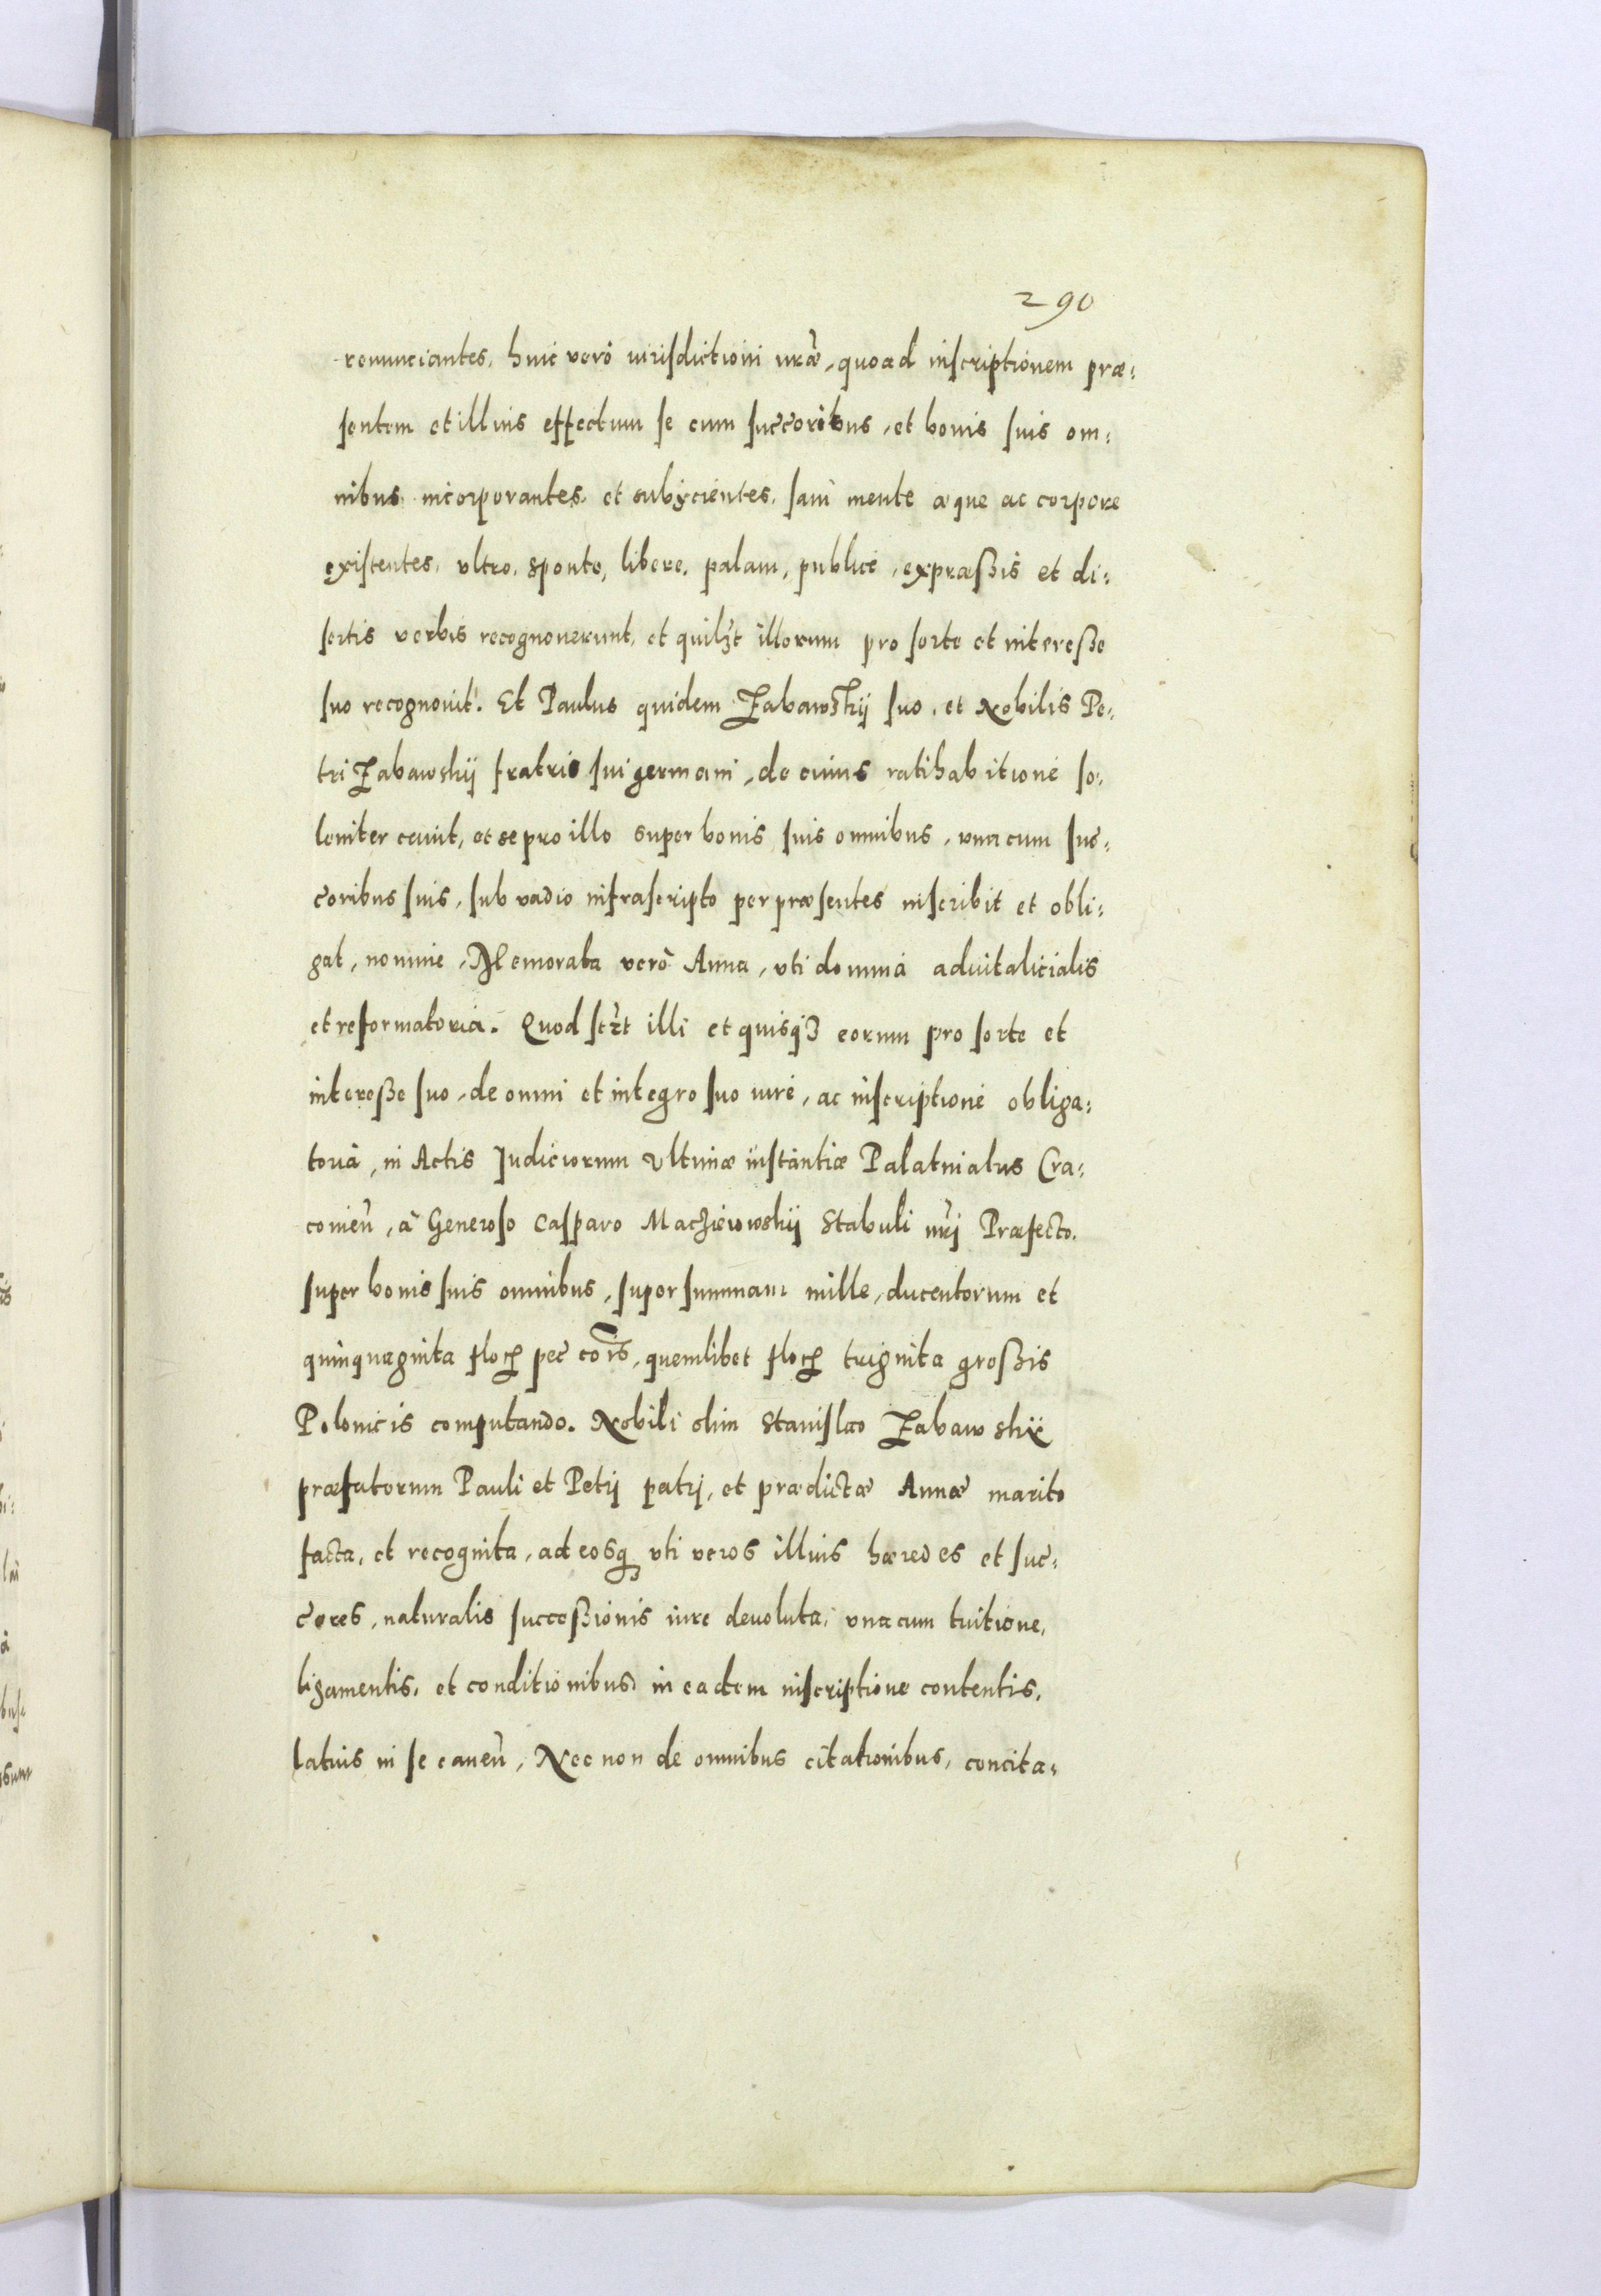 290
renunciantes, huic verò iurisdictioni nr̃æ, quoad inscriptionem præ:
sentem et illius effectum se cum succ̃oribus, et bonis suis om:
nibus incorporantes, et subÿcientes, sani mente æque ac corpore
existentes, vltro, sponte, libere, palam, publice, expræßis et di:
sertis verbis recognouerunt, et quilꝫt illorum pro sorte et intereße
suo recognouit. Et Paulus quidem Zabawskij suo, et Nobilis Pe:
tri Zabawskij fratris sui germani, de cuius ratihabitione so:
leniter cauit, et se pro illo super bonis suis omnibus, vna cum suc:
c̃oribus suis, sub vadio infrascripto per præsentes inscribit et obli:
gat, nomine, Memorata verò Anna, vti domina aduitalicialis
et reformatoria. Quod scꝫt illi et quisqꝫ eorum pro sorte et
intereße suo, de omni et integro suo iure, ac inscriptione obliga:
toria, in Actis Judiciorum Vltimæ instantiæ Palatinatus Cra:
couien̄, à Generoso Casparo Maczieiowskij Stabuli nr̃i Præfecto,
super bonis suis omnibus, super summam mille, ducentorum et
quinquaginta floꝝ pec co͞is, quemlibet floꝝ triginta großis
Polonicis computando. Nobili olim Stanislao Zabawskij
præfatorum Pauli et Petrj patrj, et prædictæ Annæ marito
facta, et recognita, ad eosqꝫ vti veros illius hæredes et suc:
c̃ores, naturalis succeßionis iure deuoluta, vna cum tuitione,
ligamentis, et conditionibus in eadem inscriptione contentis,
latius in se canen̄, Nec non de omnibus citationibus, concita: